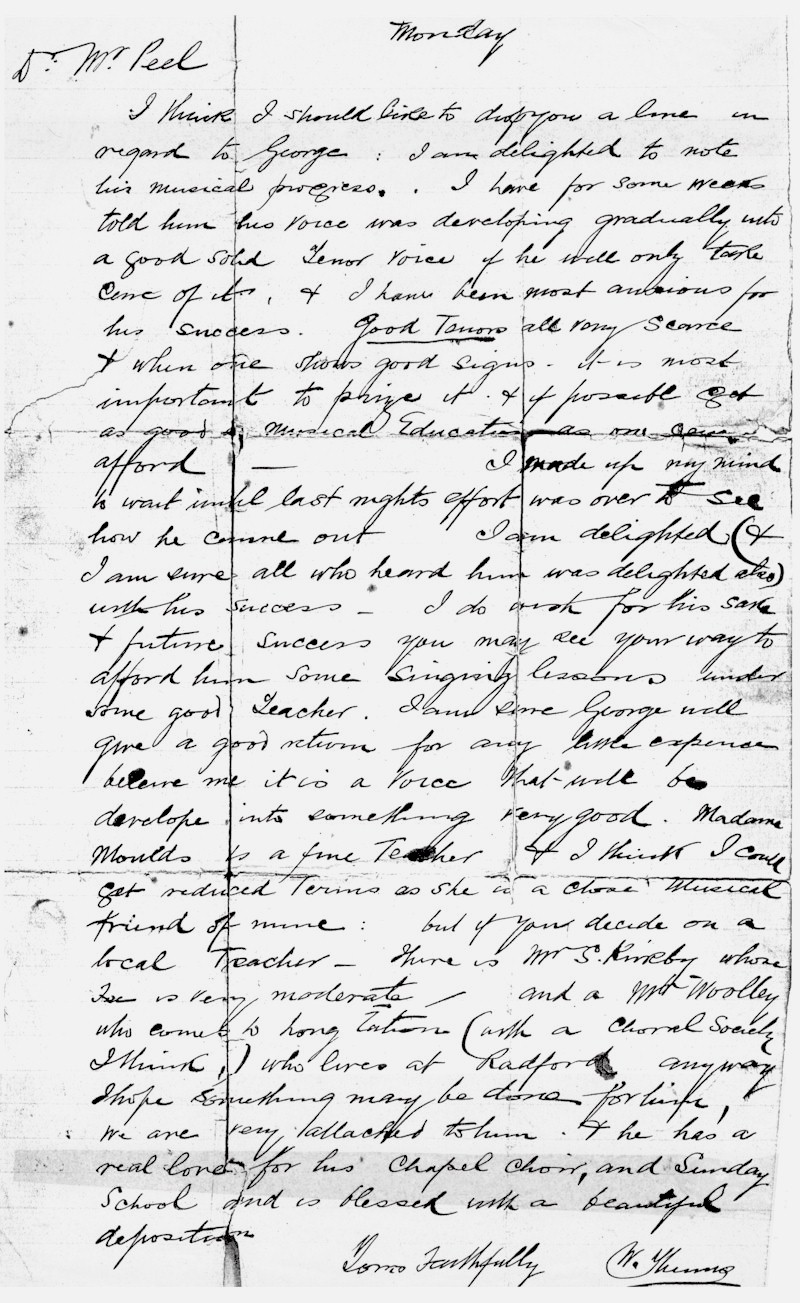 Monday
Dr Mr Peel
I think I should like to drop you a line in
regard to George : I am delighted to note
his musical progress. . I have for some weeks
told him his voice was developing gradually into
a good solid Tenor voice if he will only take
care of it , & I have been most anxious for
his success. Good Tenors all very scarce
& when one shows good signs . it is most
important to prize it . & if possible get
as good a musical Education as one can
afford — I made up my mind
to wait until last nights effort was over to see
how he came out I am delighted (&
I am sure all who heard him was delighted also)
with his success — I do wish for his sake
& future success you may see your way to
afford him some singing lessons under
some good Teacher . I am sure George will
give a good return for any little expence
beleive me it is a voice that will be
develope into something very good . Madame
Moulds is a fine Teacher & I think I could
get reduced Terms as she is a close Musical
Friend of mine : but if you decide on a
local Teacher — there is Mr S. Kirkby whose
Fee is very moderate / and a Mr Woolley
who comes to Long Eaton (with a Choral Society
I think ,) who lives at Radford anyway
I hope something may be done for him ,
we are very attached to him . & he has a
real love for his Chapel Choir, and Sunday
School and is blessed with a beautiful
deposition
Yours Faithfully W.